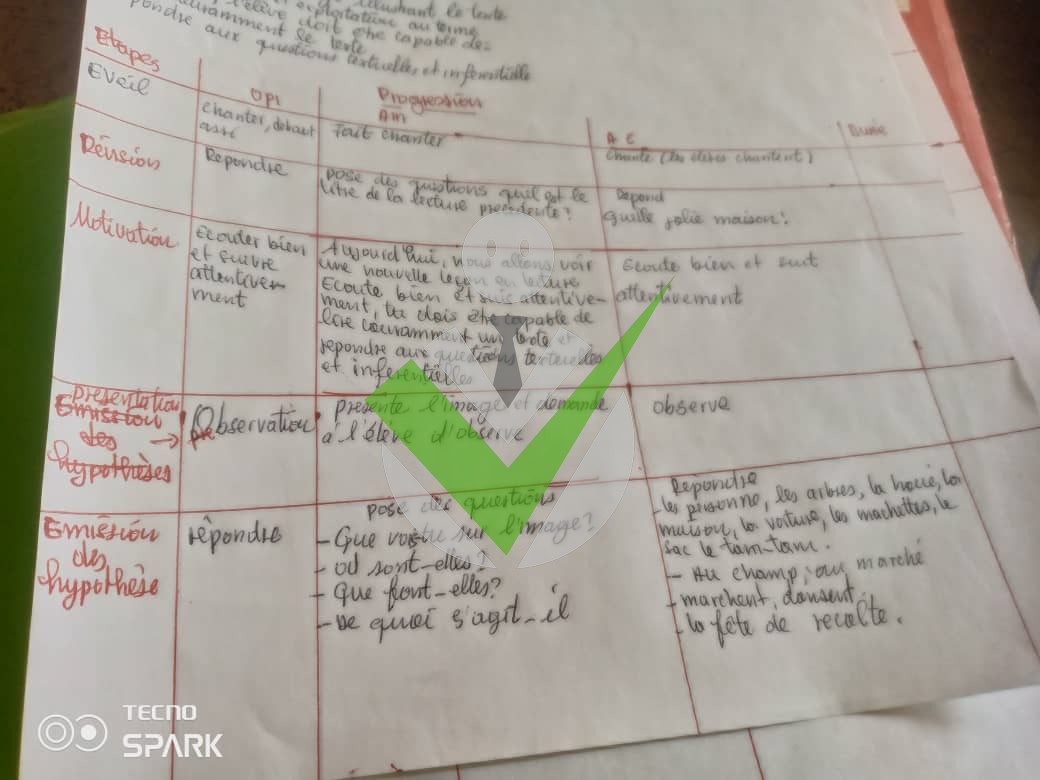 illustrant le texte
exploitation au terme
l'élève doit être capable de:
couramment le texte
pondre aux questions textuelles et inferentielle
Etapes
OPI
Progression
AM
A E
Durée
Eveil
chanter, debout
assi
Fait chanter
chante (les élèves chantent)
Révision
Repondre
pose des questions quel est le
titre de la lecture precedente?
Repond
quelle jolie maison!
Motivation
Ecouter bien
et suivre
attentive-
ment
Aujourd'hui, nous allons voir
une nouvelle leçon en lecture
Ecoute bien et suis attentive-
ment, tu dois être capable de
lire couramment un texte et
repondre aux questions textuelles
et inferentielles
Ecoute bien et suit
attentivement
presentation
Emission
des
hypothèses
Observation
presente l'image et demande
à l'élève d'observe
observe
Emission
des
hypothèse
répondre
pose des questions
- Que vois-tu sur l'image?
- où sont-elles?
- Que font-elles?
- De quoi s'agit-il
Repondre
- les personne, les arbres, la houe, la
maison, la voiture, les machettes, le
sac le tam-tam.
- Au champ, au marché
- marchent, dansent
- la fête de recolte.
TECNO
SPARK